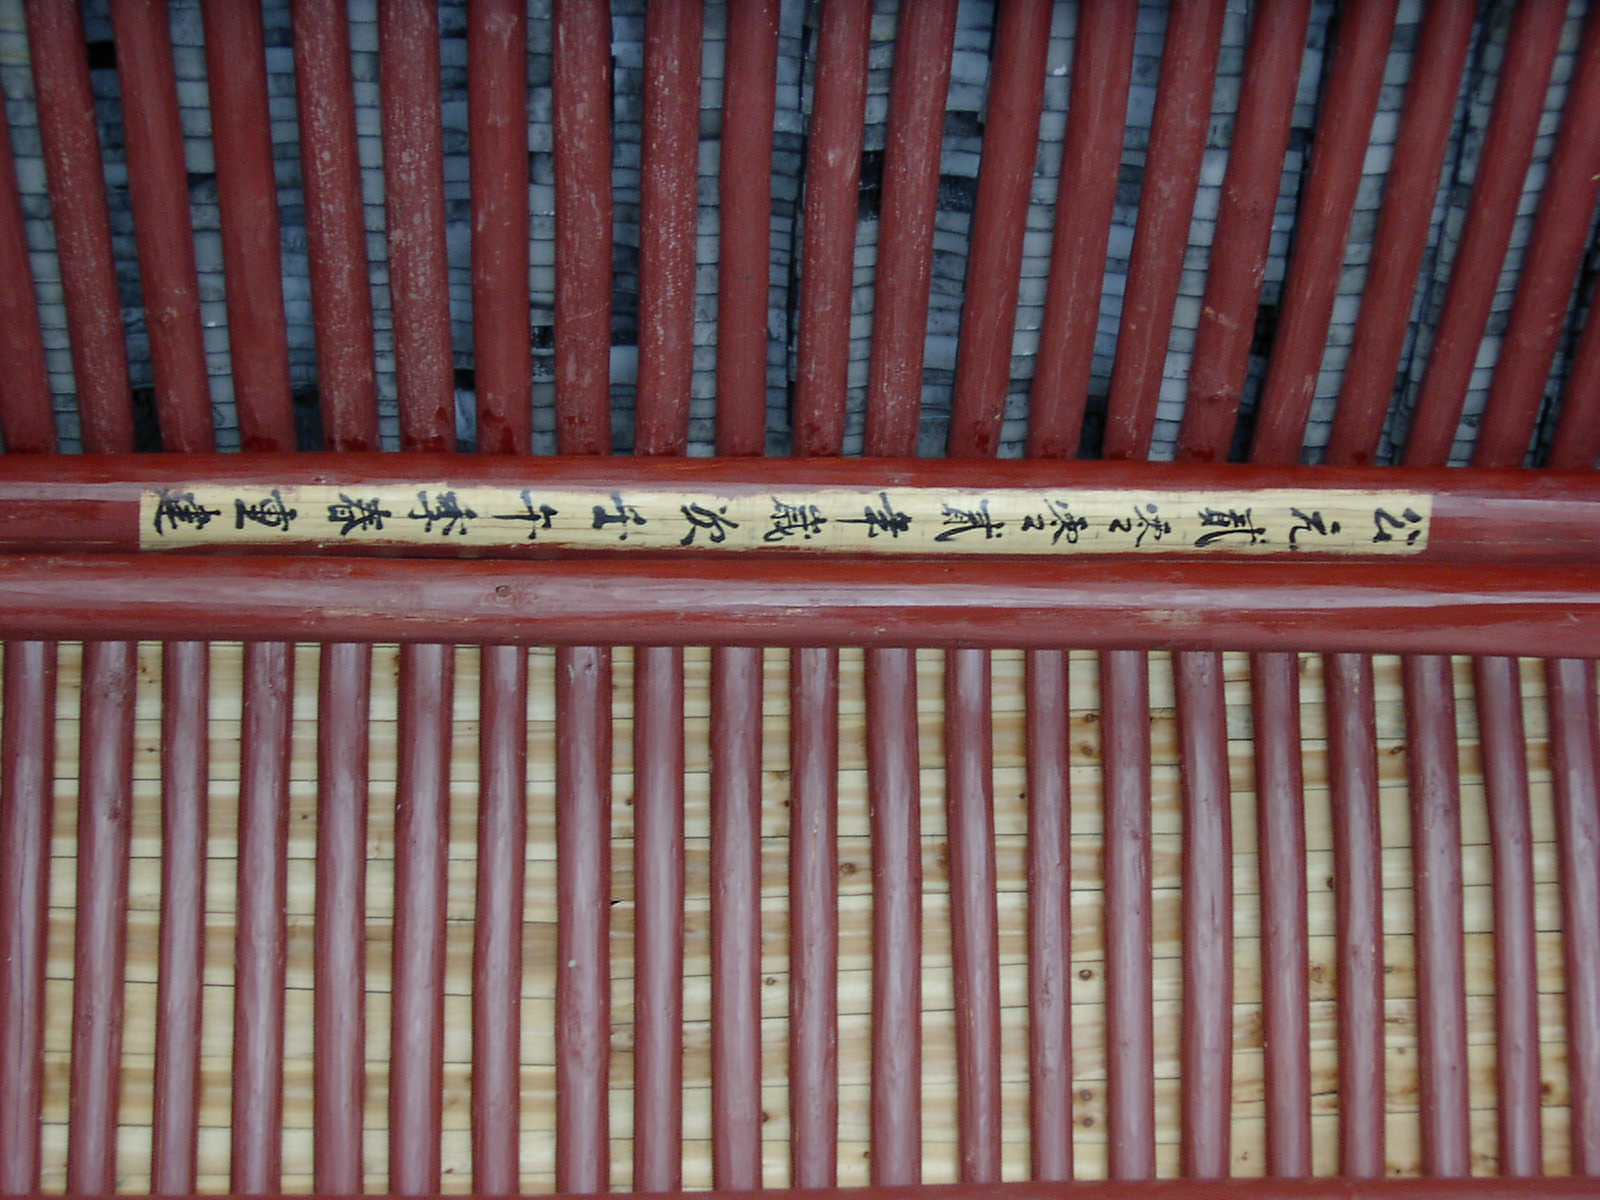 公元貳零零貳年歲次壬午季春重建